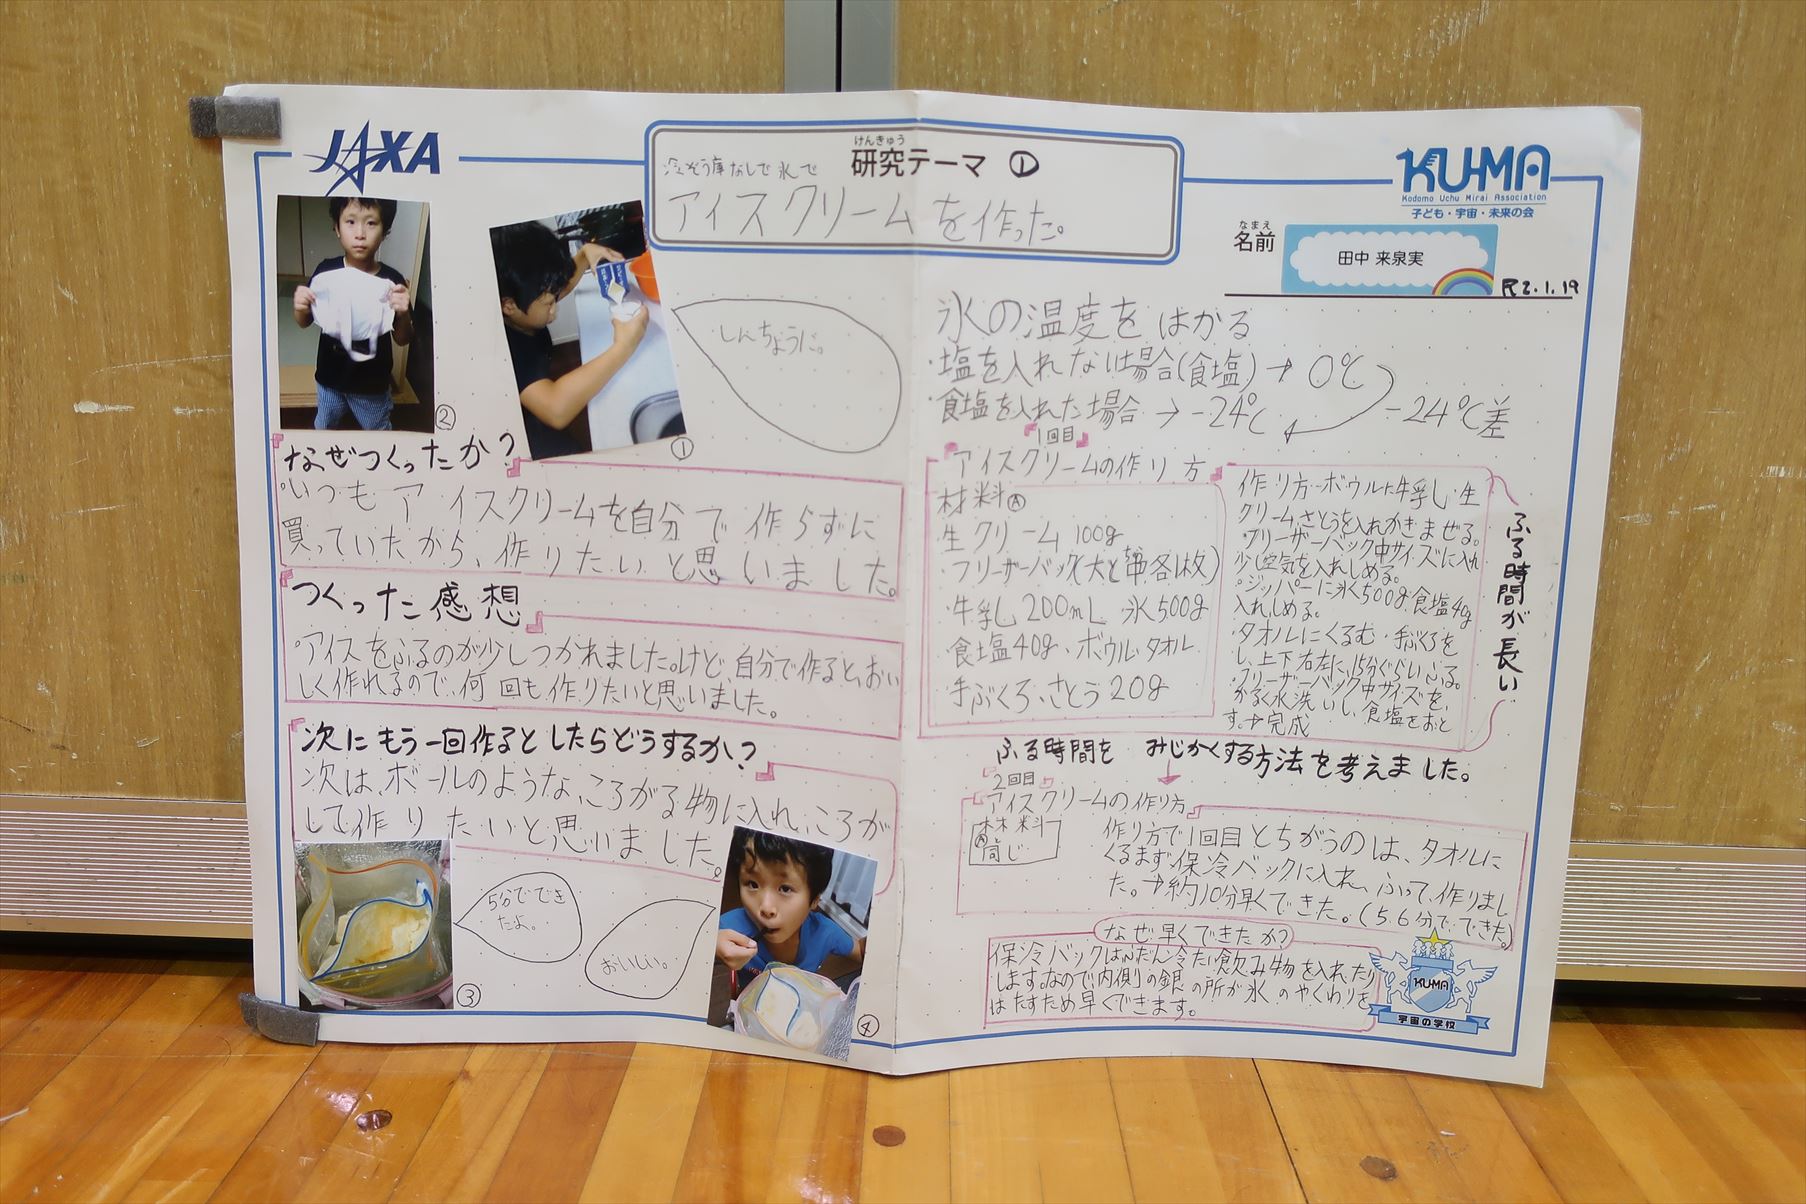 JAXA
けんきゅう
研究テーマ ①
冷ぞう庫なしで氷で
アイスクリームを作った。
KU-MA
Kodomo Uchu Mirai Association
子ども・宇宙・未来の会
なまえ
名前
田中 来泉実
R2.1.19
②
①
しんちょうに。
なぜつくったか?
・いつもアイスクリームを自分で作らずに
買っていたから、作りたいと思いました。
つくった感想
・アイスをふるのが少しつかれました。けど、自分で作ると、おい
しく作れるので、何回も作りたいと思いました。
次にもう一回作るとしたらどうするか?
次は、ボールのような、ころがる物に入れ、ころが
して作りたいと思いました。
5分でできたよ。
おいしい。
③
④
氷の温度をはかる
・塩を入れない場合(食塩)→0℃
・食塩を入れた場合→-24℃
-24℃差
1回目
アイスクリームの作り方
材料Ⓐ
生クリーム 100g
・フリーザーバック(大と中各1枚)
・牛乳 200mL 氷500g
食塩40g、ボウル・タオル
手ぶくろ、さとう20g
作り方-ボウルに牛乳、生
クリーム、さとうを入れかきまぜる。
・フリーザーバック中サイズに入れ
少し空気を入れしめる。
・ジッパーに氷500g食塩40g
入れしめる。
・タオルにくるむ・手ぶくろを
し、上下右左に、15分ぐらいふる。
・フリーザーバック中サイズを、
かるく水洗いし、食塩をおと
す。→完成
ふる時間が長い
ふる時間を みじかくする方法を考えました。
2回目
アイスクリームの作り方
材料
Ⓐ同じ
作り方で1回目とちがうのは、タオルに
くるまず保冷バックに入れ、ふって、作りまし
た。→約10分早くできた。(5.6分で、できた)
なぜ早くできたか?
保冷バックはふだん冷たい飲み物を入れたり
します。なので、内側の銀の所が氷のやくわりを
はたすため早くできます。
KU-MA
宇宙の学校